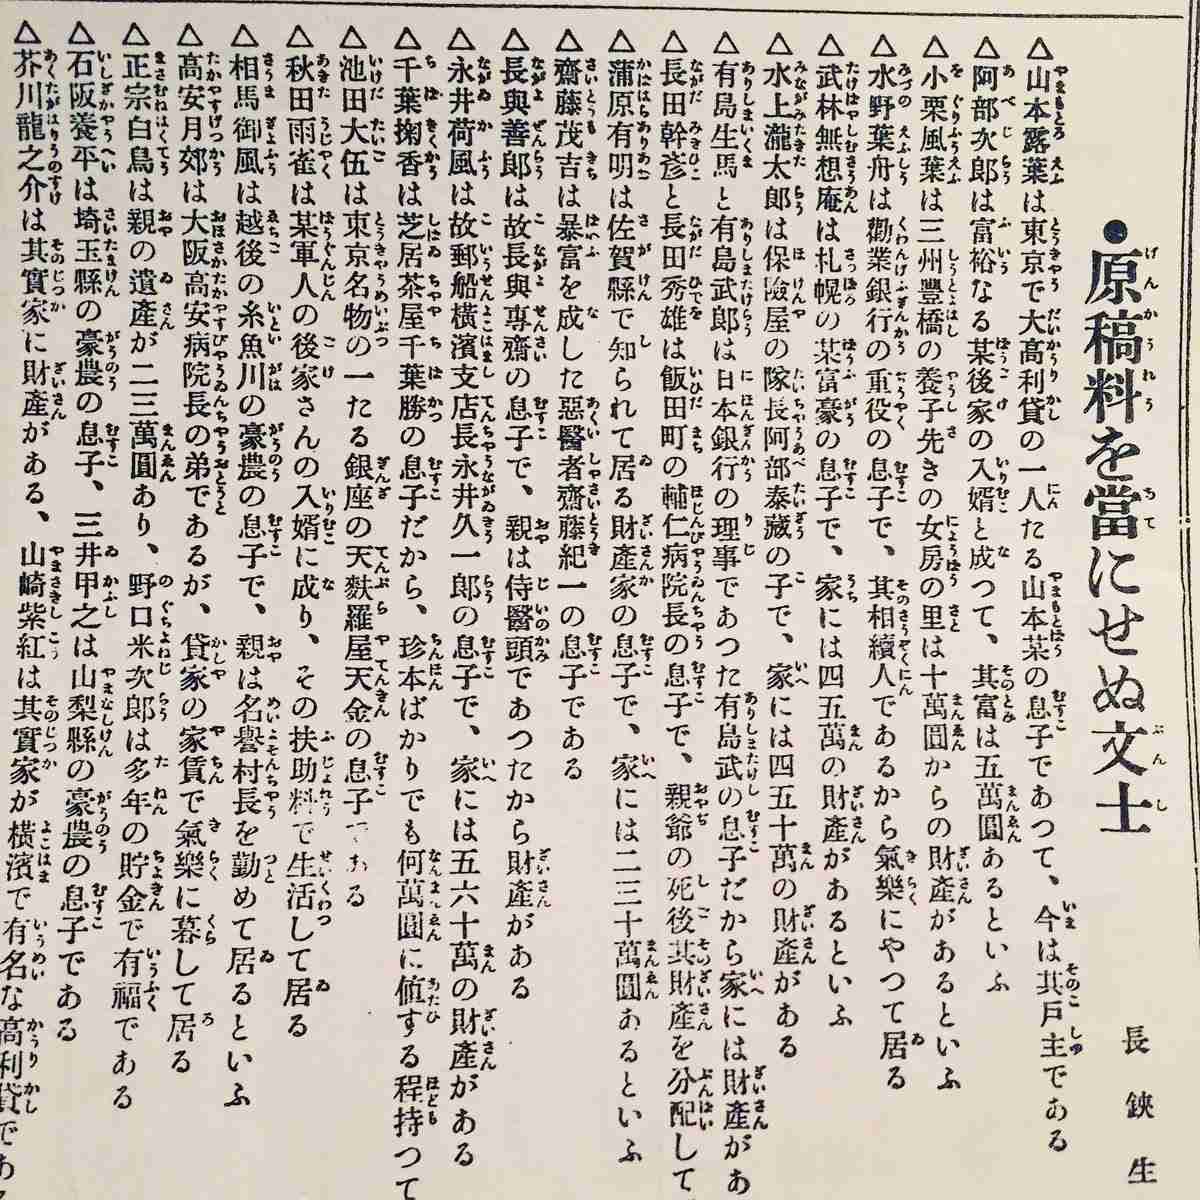 ●原稿料を當にせぬ文士
長鋏生
△山本露葉は東京で大高利貸の一人たる山本某の息子であつて、今は其戸主である
△阿部次郎は富裕なる某後家の入婿と成つて、其富は五萬圓あるといふ
△小栗風葉は三州豐橋の養子先きの女房の里は十萬圓からの財產があるといふ
△水野葉舟は勸業銀行の重役の息子で、其相續人であるから氣樂にやつて居る
△武林無想庵は札幌の某富豪の息子で、家には四五萬の財產があるといふ
△水上瀧太郎は保險屋の隊長阿部泰藏の子で、家には四五十萬の財產がある
△有島生馬と有島武郎は日本銀行の理事であつた有島武の息子だから家には財產があ
△長田幹彥と長田秀雄は飯田町の輔仁病院長の息子で、親爺の死後其財產を分配して
△蒲原有明は佐賀縣で知られて居る財產家の息子で、家には二三十萬圓あるといふ
△齋藤茂吉は暴富を成した惡醫者齋藤紀一の息子である
△長與善郎は故長與專齋の息子で、親は侍醫頭であつたから財產がある
△永井荷風は故郵船橫濱支店長永井久一郎の息子で、家には五六十萬の財產がある
△千葉掬香は芝居茶屋千葉勝の息子だから、珍本ばかりでも何萬圓に値する程持つて
△池田大伍は東京名物の一たる銀座の天麩羅屋天金の息子である
△秋田雨雀は某軍人の後家さんの入婿に成り、その扶助料で生活して居る
△相馬御風は越後の糸魚川の豪農の息子で、親は名譽村長を勤めて居るといふ
△高安月郊は大阪高安病院長の弟であるが、貸家の家賃で氣樂に暮して居る
△正宗白鳥は親の遺產が二三萬圓あり、野口米次郎は多年の貯金で有福である
△石阪養平は埼玉縣の豪農の息子、三井甲之は山梨縣の豪農の息子である
△芥川龍之介は其實家に財產がある、山崎紫紅は其實家が橫濱で有名な高利貸であ